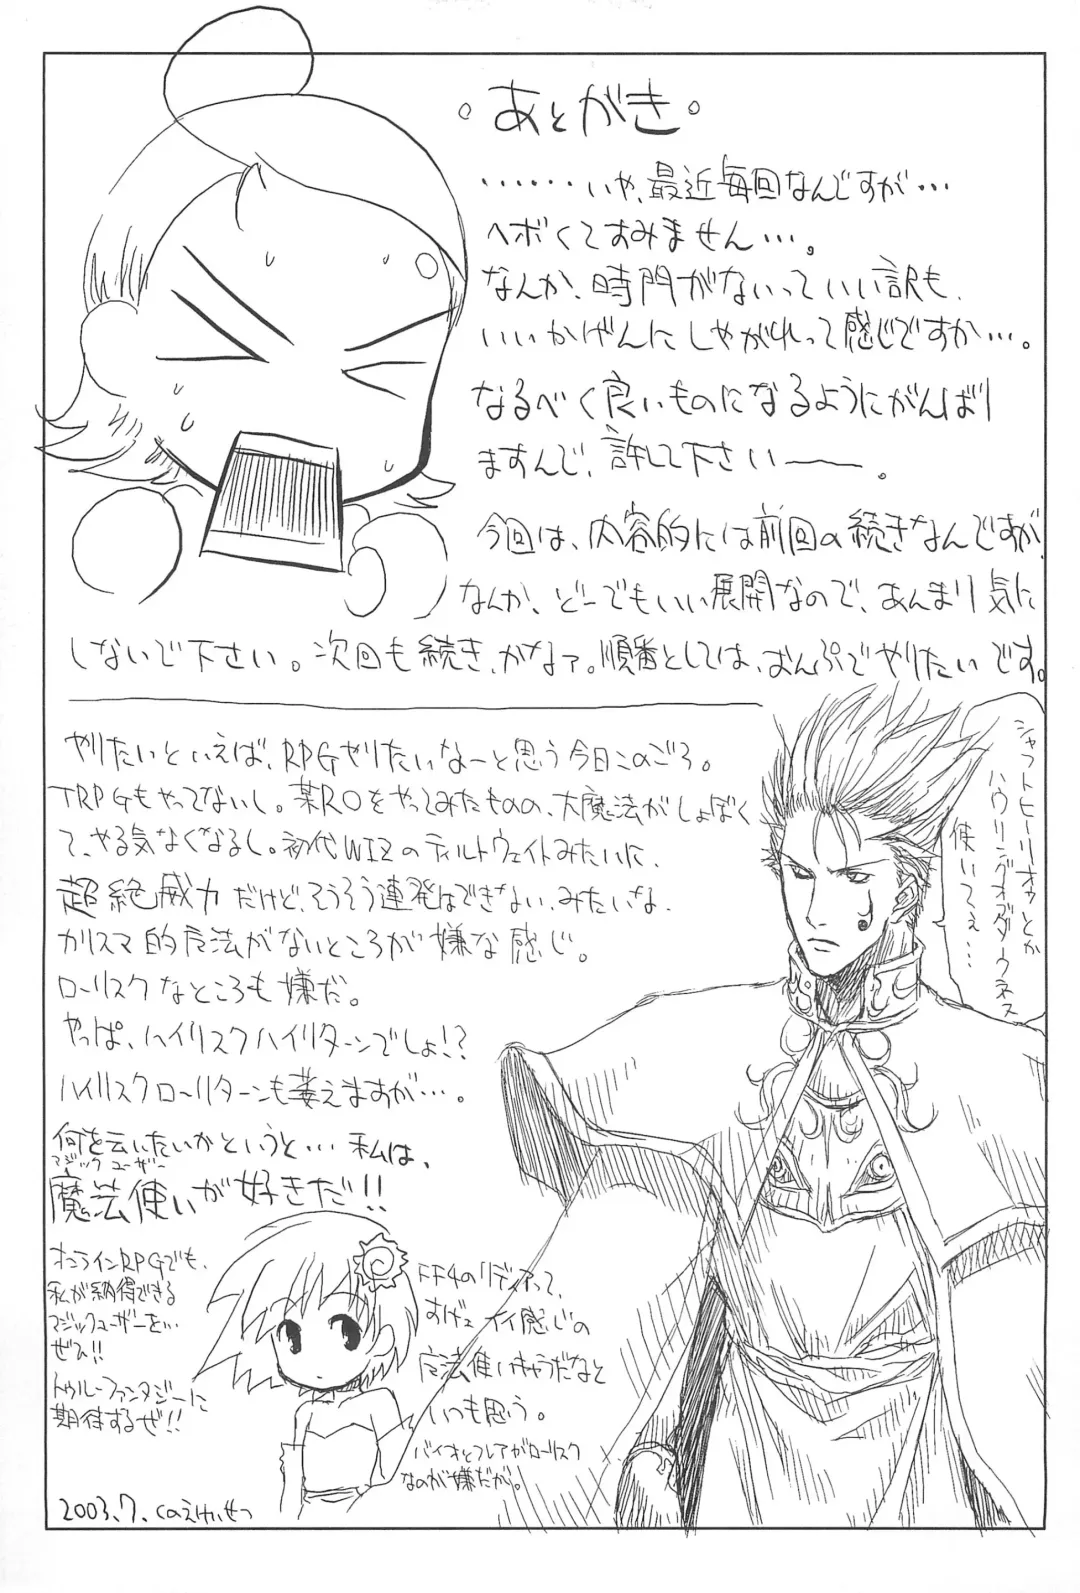 。あとがき。
・・・・・・いや、最近毎回なんですが・・・
ヘボくてすみません・・・。
なんか、時間がないっていい訳も、
いいかげんにしやがれって感じですか・・・。
なるべく良いものになるようにがんばり
ますんで、許して下さいーー。
今回は、内容的には前回の続きなんですが、
なんか、どーでもいい展開なので、あんまり気に
しないで下さい。次回も続き、かなァ。順番としては、おんぷでやりたいです。
やりたいといえば、RPGやりたいなーと思う今日このごろ。
TRPGもやってないし。某ROをやってみたものの、大魔法がしょぼく
て、やる気なくなるし。初代WIZのティルトウェイトみたいに、
超絶威力だけど、そうそう連発はできない、みたいな、
カリスマ的魔法がないところが嫌な感じ。
ローリスクなところも嫌だ。
やっぱ、ハイリスクハイリターンでしょ!?
ハイリスクローリターンも萎えますが・・・。
何を云いたいかというと・・・私は、
マジックユーザー
魔法使いが好きだ!!
オンラインRPGでも、
私が納得できる
マジックユーザーを・・・
ぜひ!!
トゥルーファンタジーに
期待するぜ!!
FF4のリディアって、
すげェイイ感じの
魔法使いキャラだなと
いつも思う。
バイオとフレアがローリスク
なのが嫌だが。
シャフトヒーリオゥとか
ハウリングオブダークネス
使いてぇ・・・
2003.7. くのえけいせつ